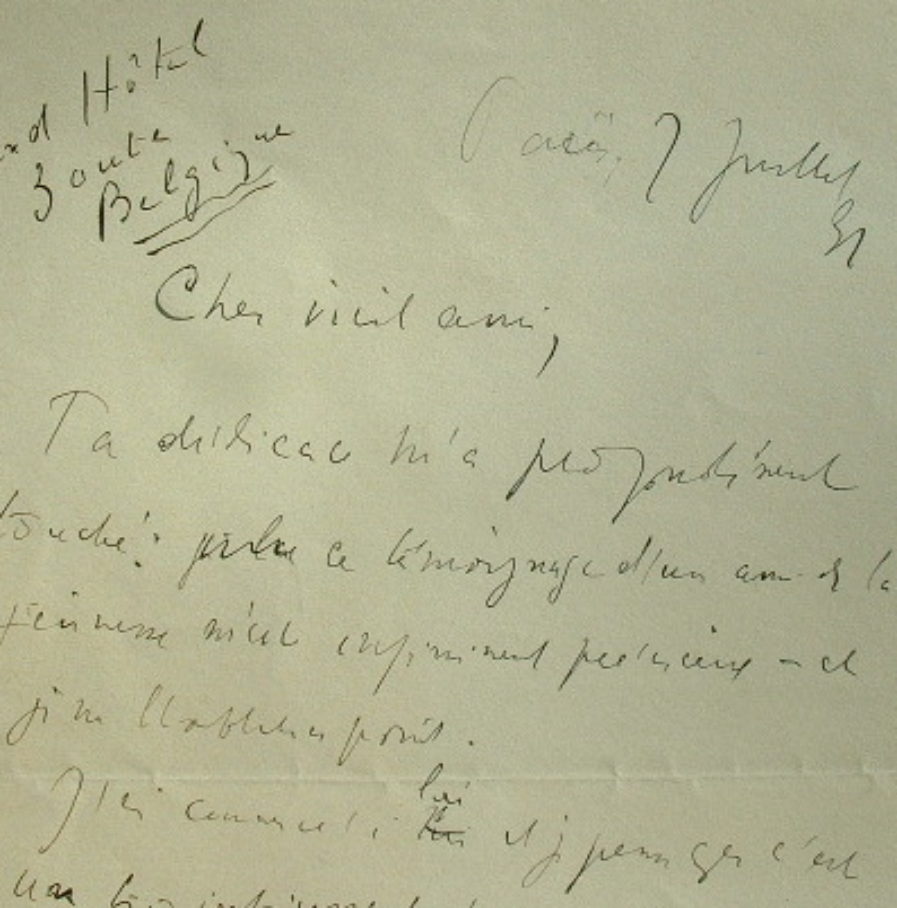 nd Hôtel
Zoute
Belgique
Paris, 7 Juillet
31
Cher vieil ami,
Ta dédicace m'a profondément
touché: ce témoignage d'un ami de la
jeunesse m'est infiniment précieux - et
je ne l'oublierai point.
J'ai commencé à lui et je pense que c'est
une